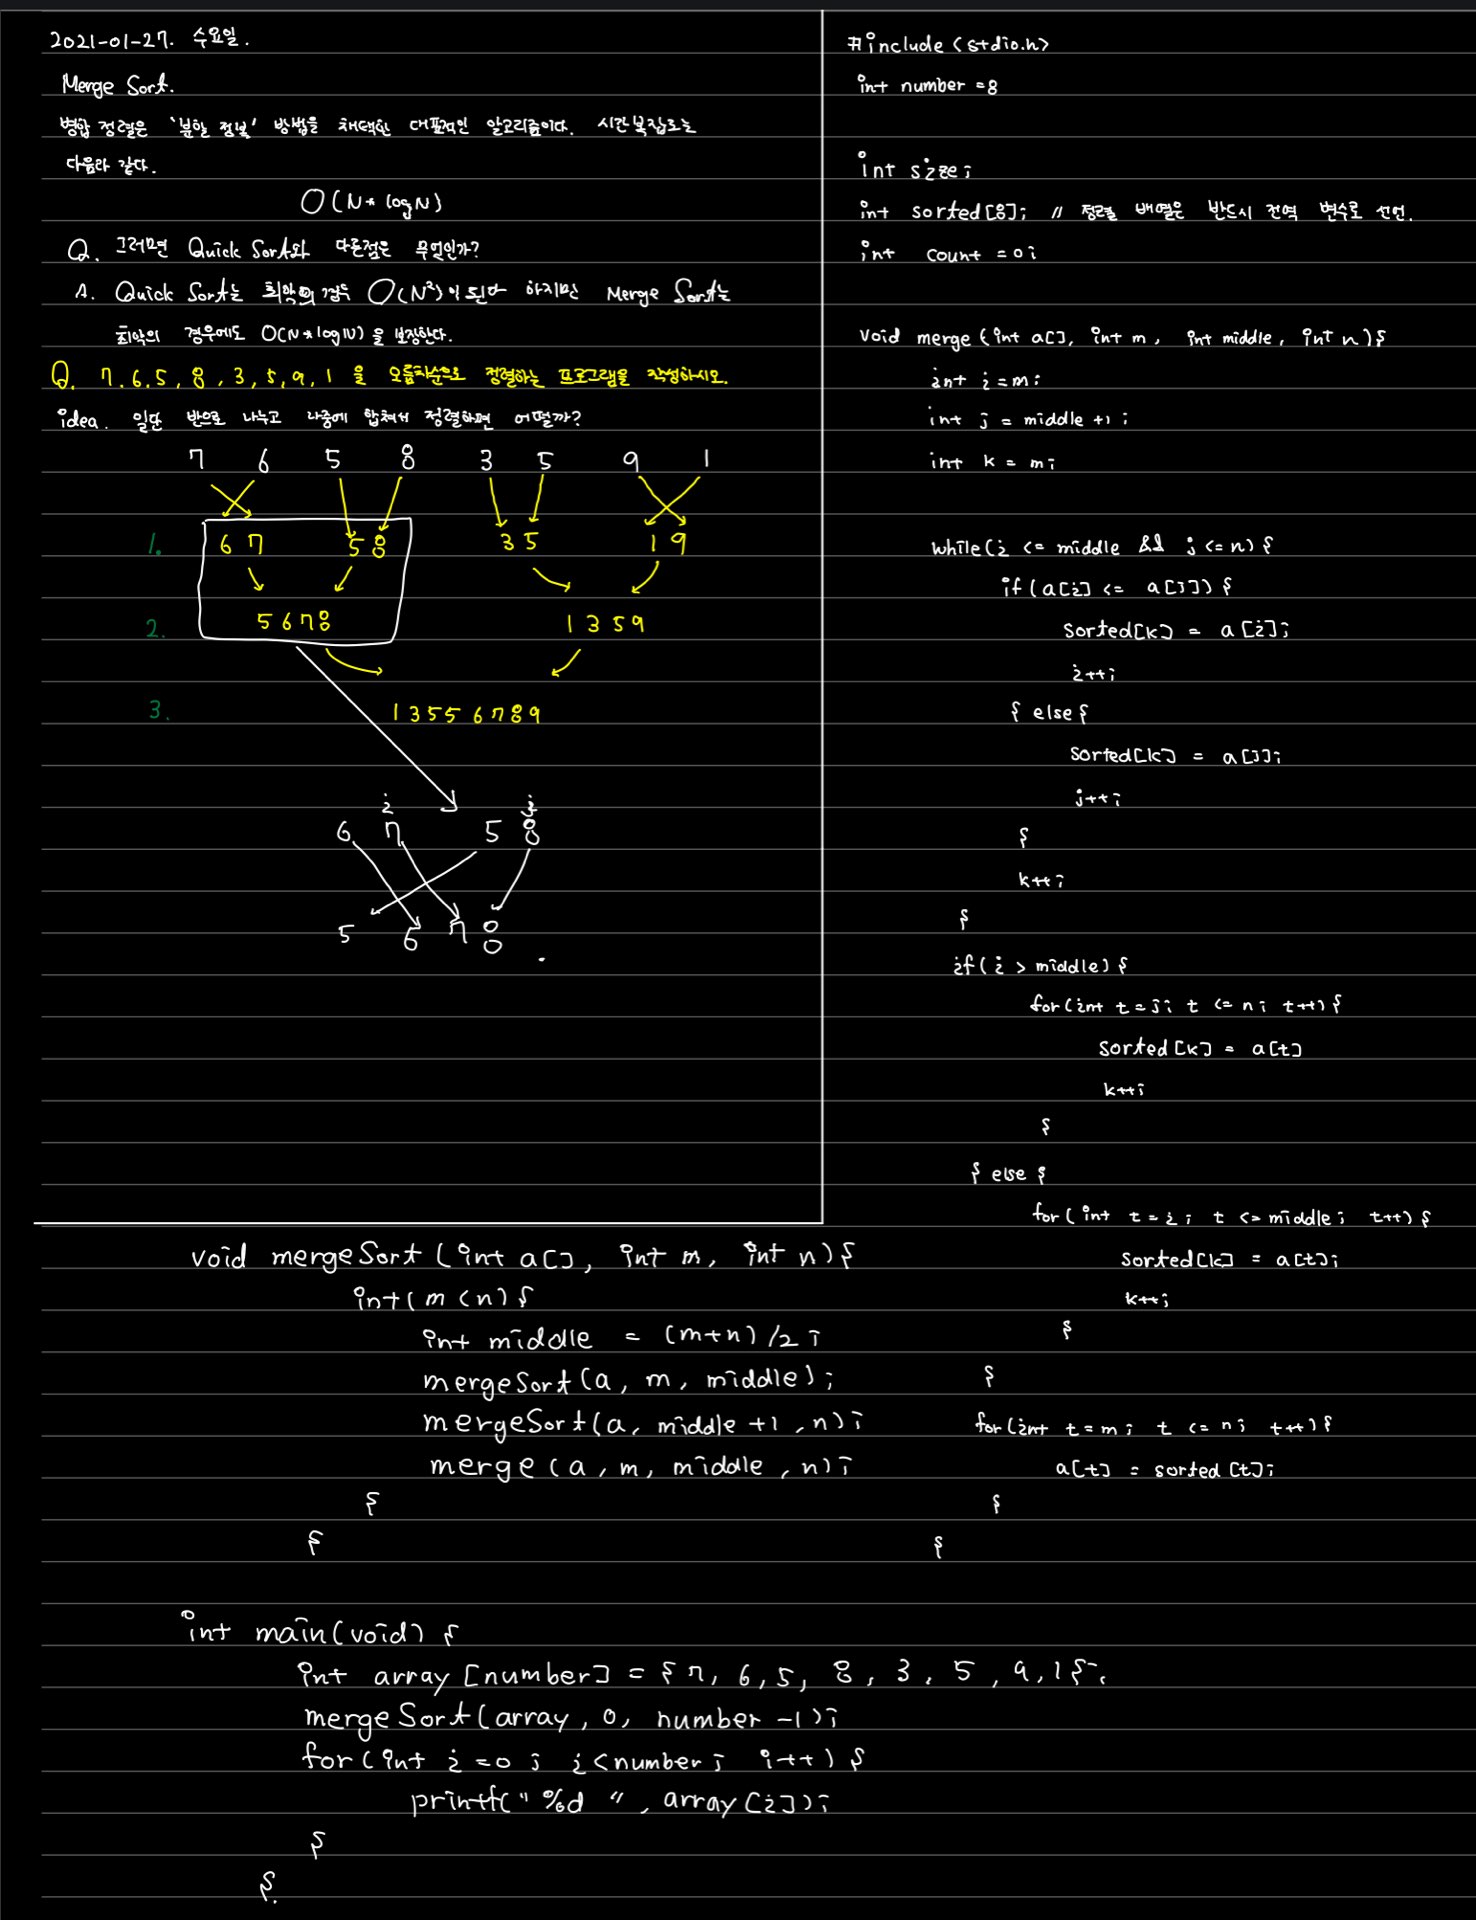 2021-01-27. 수요일.
Merge Sort.
병합 정렬은 '분할 정복' 방법을 채택한 대표적인 알고리즘이다. 시간 복잡도는
다음과 같다.
O(N* logN)
Q. 그러면 Quick Sort와 다른점은 무엇인가?
A. Quick Sort는 최악의 경우 O(N²)이 된다 하지만 Merge Sort는
최악의 경우에도 O(N*logN)을 보장한다.
Q. 7, 6, 5, 8, 3, 5, 9, 1 을 오름차순으로 정렬하는 프로그램을 작성하시오.
idea. 일단 반으로 나누고 나중에 합쳐서 정렬하면 어떨까?
7 6 5 8 3 5 9 1
1. 6 7 5 8 3 5 1 9
2. 5 6 7 8 1 3 5 9
3. 1 3 5 5 6 7 8 9
i j
6 7 5 8
5 6 7 8
#include <stdio.h>
int number =8
int size;
int sorted[8]; // 정렬 배열은 반드시 전역 변수로 선언.
int count =0;
void merge (int a[], int m, int middle, int n){
int i=m;
int j = middle +1;
int k = m;
while(i <= middle && j <= n) {
if(a[i] <= a[j]) {
sorted[k] = a[i];
i++;
} else {
sorted[k] = a[j];
j++;
}
k++;
}
if(i > middle) {
for(int t=j; t <= n; t++) {
sorted[k] = a[t]
k++;
}
} else {
for( int t=i; t <= middle; t++) {
sorted[k] = a[t];
k++;
}
}
for(int t=m; t <= n; t++) {
a[t] = sorted[t];
}
}
void mergeSort (int a[], int m, int n){
int( m <n) {
int middle = (m+n)/2;
mergeSort(a, m, middle);
mergeSort(a, middle +1, n);
merge (a, m, middle, n);
}
}
int main(void) {
int array [number] = {7, 6, 5, 8, 3, 5, 9, 1};
mergeSort(array, 0, number -1);
for(int i=0; i<number; i++) {
printf(" %d ", array[i]);
}
}.